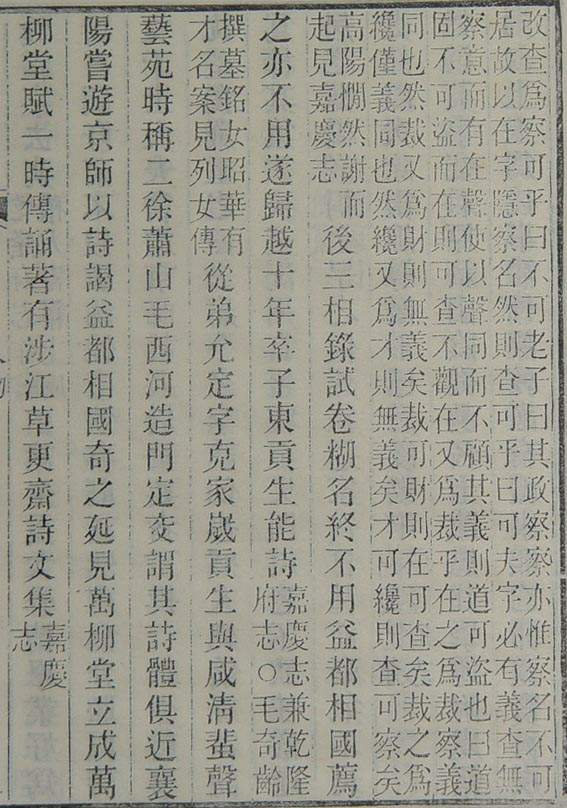 改查爲察可乎曰不可老子曰其政察察亦惟察名不可
居故以在字隱察名然則查可乎曰可夫字必有義查無
察意而有在聲使以聲同而不顧其義則道可盜也曰道
固不可盜而在則可查不觀在又爲裁乎在之爲裁察義
同也然裁又爲財則無義矣裁可財則在可查矣裁之爲
纔僅義同也然纔又爲才則無義矣才可纔則查可察矣
高陽憪然謝而
起見嘉慶志
後三相錄試卷糊名終不用益都相國薦
之亦不用遂歸越十年卒子東貢生能詩
嘉慶志兼乾隆
府志○毛奇齡
撰墓銘女昭華有
才名案見列女傳
從弟允定字克家歲貢生與咸清蜚聲
藝苑時稱二徐蕭山毛西河造門定交謂其詩體俱近襄
陽嘗遊京師以詩謁益都相國奇之延見萬柳堂立成萬
柳堂賦一時傳誦著有涉江草更齋詩文集
嘉慶
志